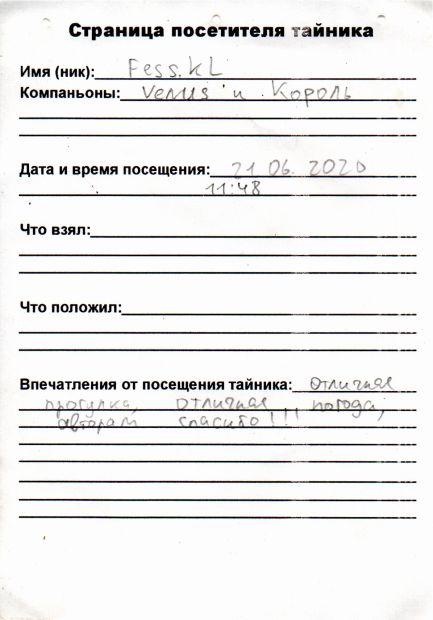 Страница посетителя тайника
Имя (ник): Fess.kL
Компаньоны: Venus и Король
Дата и время посещения: 21 06. 2020
11:48
Что взял:
Что положил:
Впечатления от посещения тайника: Отличная
прогулка, отличная погода,
авторам спасибо!!!